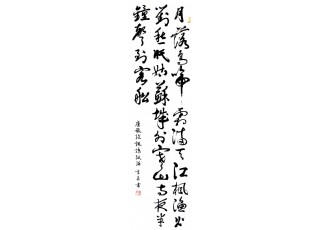 月落烏啼霜滿天江楓漁火
對愁眠姑蘇城外寒山寺夜半
鐘聲到客船
唐張繼楓橋夜泊